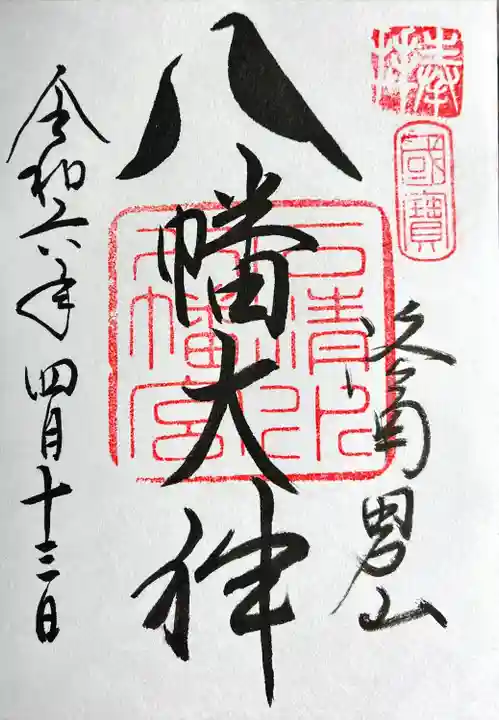 奉拝
國寶
洛南男山
八幡大神
石清水
八幡宮
令和六年四月十三日